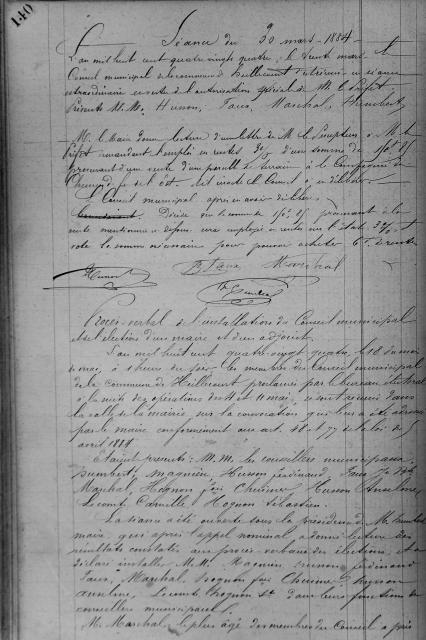 140
Séance du 30 mars 1884
L'an mil huit cent quatre vingt quatre, le trente mars le
Conseil municipal de la commune d'Heillecourt s'est réuni en séance
extraordinaire en vertu de l'autorisation spéciale de M. le Préfet
Présents M.M. Husson, Taus, Marchal, Humbert,
M. le Maire donne lecture d'une lettre de M. le Percepteur à M. le
Préfet demandant l'emploi en rentes 3% d'une somme de
provenant d'une vente d'une parcelle de terrain à la Compagnie de
Chemin de fer de l'Est. invite le Conseil à en délibérer.
Le Conseil municipal après en avoir délibéré
Décide que la somme de provenant de la
vente mentionnée ci-dessus sera employée en rentes sur l'état 3% et
vote la somme nécessaire pour pouvoir acheter 6f de rente
Husson Taus Marchal
Humbert
Procès-verbal de l'installation du Conseil municipal
et de l'élection d'un maire et d'un adjoint.
L'an mil huit cent quatre-vingt quatre, le 18 du mois
de mai, à heures du soir les membres du Conseil municipal
de la commune de Heillecourt proclamés par le bureau électoral
à la suite des opérations des 4 et 11 mai, se sont réunis dans
la salle de la mairie sur la convocation qui leur a été adressée
par le maire conformément aux art. 48 et 77 de la loi du 5
avril 1884.
Etaient présents : M.M. les conseillers municipaux
Humbert, Magnien, Husson Ferdinand, Taus
Marchal, Hognon Chrétien Husson Anselme,
Lecomte Camille Hognon Sébastien.
La séance a été ouverte sous la présidence de M. Humbert
maire, qui après l'appel nominal, a donné lecture des
résultats constatés aux procès-verbaux des élections, et a
déclaré installer M.M. Magnien, Husson Ferdinand
Taus, Marchal, Hognon Husson
Anselme, Lecomte, Hognon Sn dans leurs fonctions de
conseillers municipaux.
M. Marchal, le plus âgé des membres du Conseil a pris